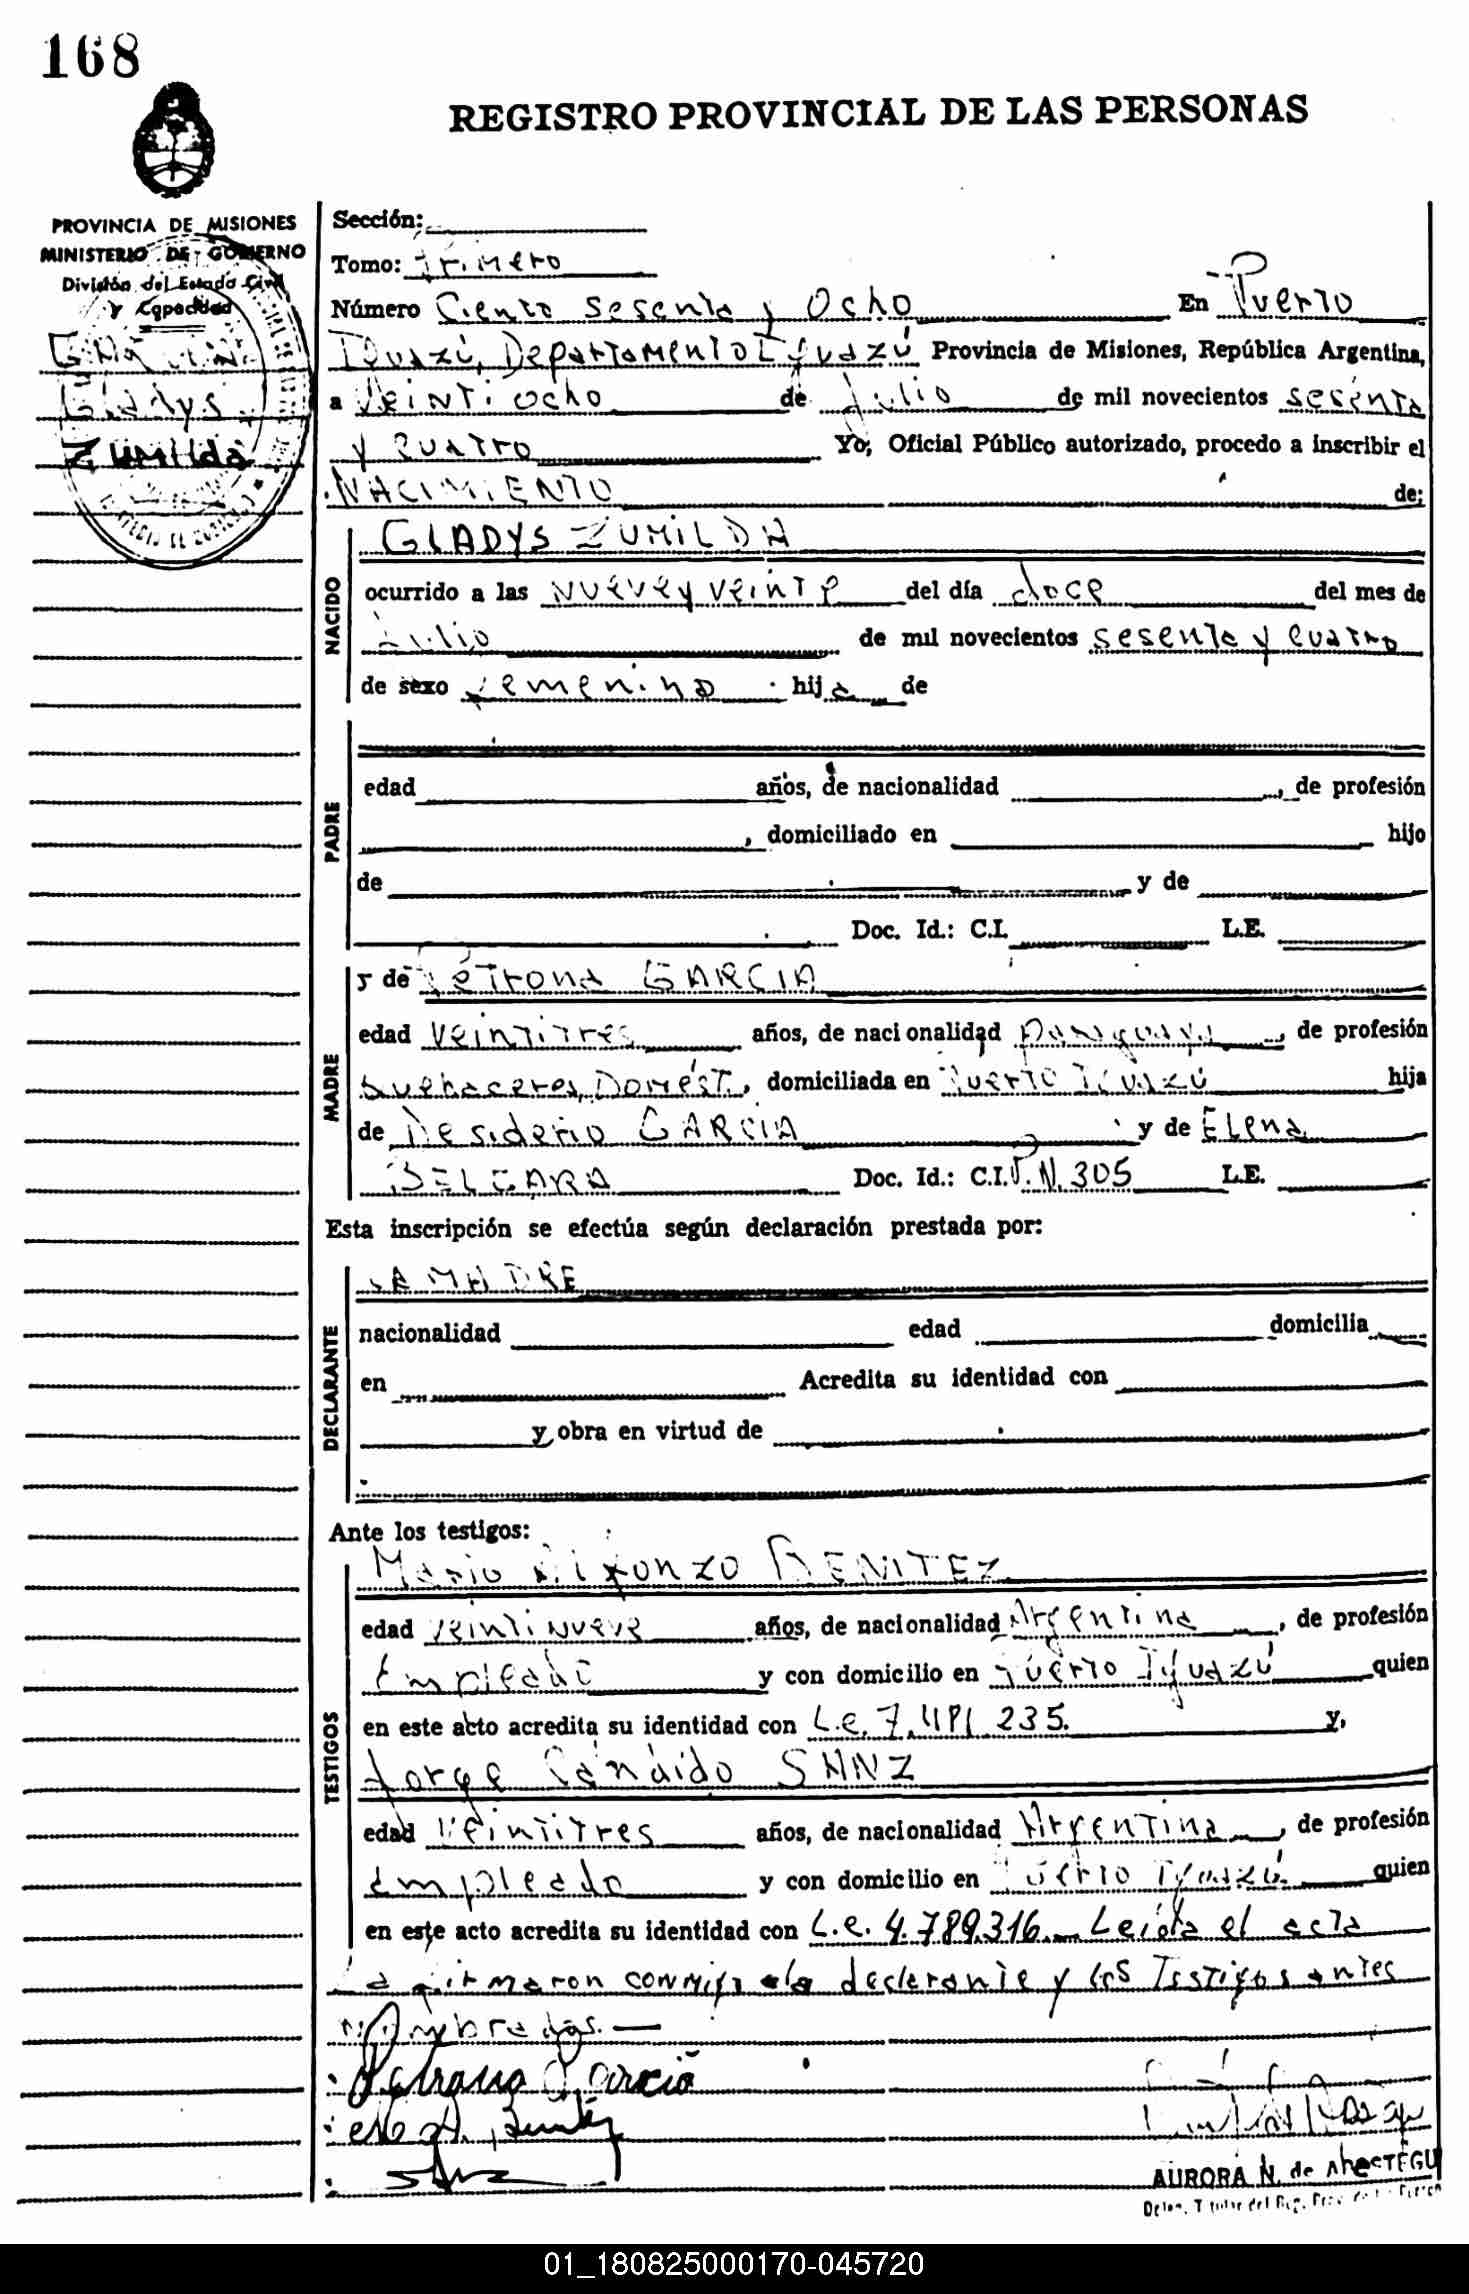 168
REGISTRO PROVINCIAL DE LAS PERSONAS
PROVINCIA DE MISIONES
MINISTERIO DE GOBIERNO
División del Estado Civil
y Capacidad
Gladys
Zumilda
Sección:
Tomo: Primero
Número Ciento sesenta y Ocho En Puerto
Iguazú, Departamento Iguazú Provincia de Misiones, República Argentina,
a Veintiocho de Julio de mil novecientos sesenta
y cuatro Yo, Oficial Público autorizado, procedo a inscribir el
NACIMIENTO de:
NACIDO
GLADYS ZUMILDA
ocurrido a las nueve y veinte del día doce del mes de
Julio de mil novecientos sesenta y cuatro
de sexo femenino hija de
PADRE
edad años, de nacionalidad , de profesión
, domiciliado en hijo
de y de
Doc. Id.: C.I. L.E.
MADRE
y de Petrona GARCIA
edad Veintitres años, de nacionalidad paraguaya, de profesión
Quehaceres Domést., domiciliada en Puerto Iguazú hija
de Desiderio GARCIA y de Elena
Doc. Id.: C.I. P.N. 305 L.E.
Esta inscripción se efectúa según declaración prestada por:
DECLARANTE
LA MADRE
nacionalidad edad domicilia
en Acredita su identidad con
y obra en virtud de
Ante los testigos:
TESTIGOS
Mario Alfonzo BENITEZ
edad Veintinueve años, de nacionalidad Argentina, de profesión
Empleado y con domicilio en Puerto Iguazú quien
en este acto acredita su identidad con L.e. 7. 235. y,
Jorge Cándido SANZ
edad Veintitres años, de nacionalidad Argentina, de profesión
Empleado y con domicilio en Puerto Iguazú quien
en este acto acredita su identidad con L.e. 4.789.316. Leída el acta
La firmaron conmigo la declarante y los Testigos antes
nombrados.—
Petrona Garcia
AURORA N. de
01_180825000170-045720